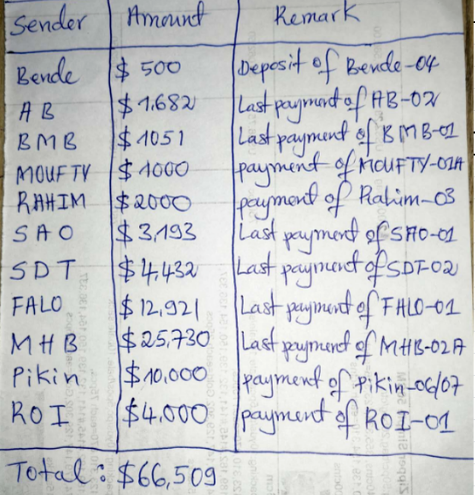 Sender Amount Remark
Bende $ 500 Deposit of Bende-04
AB $ 1,682 Last payment of AB-02
BMB $ 1051 Last payment of BMB-01
MOUFTY $ 1000 payment of MOUFTY-01A
RAHIM $ 2000 payment of Rahim-03
SAO $ 3,193 Last payment of SAO-01
SDT $ 4,432 Last payment of SDT-02
FALO $ 12,921 Last payment of FALO-01
MHB $ 25,730 Last payment of MHB-02A
Pikin $ 10,000 payment of Pikin-06/07
ROI $ 4,000 payment of ROI-01
Total: $66,509